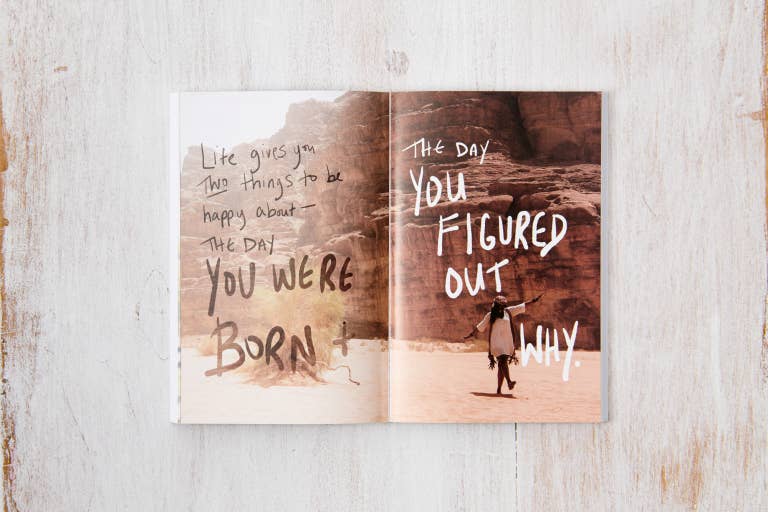 Life gives you
Two things to be
happy about—
THE DAY
YOU WERE
BORN +
THE DAY
YOU
FIGURED
OUT
WHY.